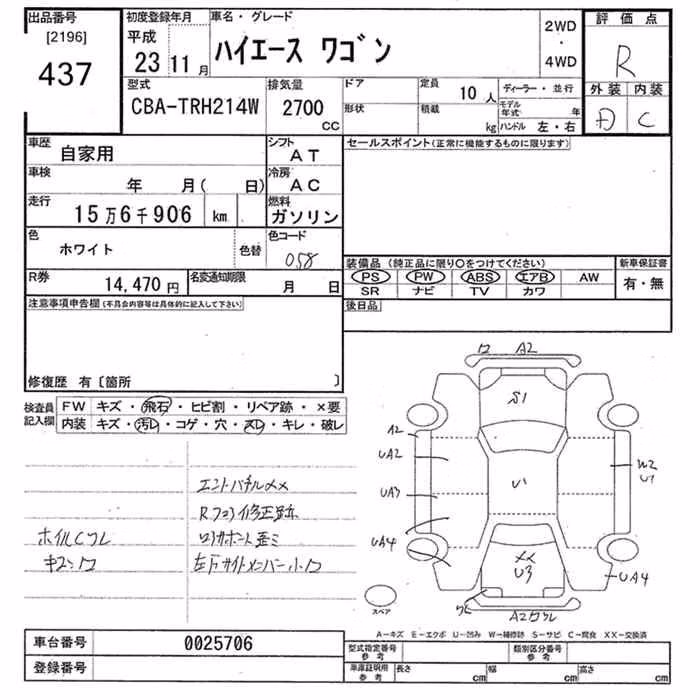 出品番号 初度登録年月 車名・グレード 2WD 評価点
[2196] 平成 ハイエース ワゴン ・ R
437 23 11月 4WD
型式 排気量 ドア 定員 10人 ディーラー・並行 外装 内装
CBA-TRH214W 2700 CC 形状 積載 kg モデル年式 年 D C
ハンドル 左・右
車歴 自家用 シフト AT セールスポイント(正常に機能するものに限ります)
車検 年 月( 日) 冷房 AC
走行 15万6千906 km 燃料 ガソリン
色 ホワイト 色替 色コード 058
装備品(純正品に限り○をつけてください) 新車保証書
R券 14,470円 名変通知期限 月 日 PS PW ABS エアB AW 有・無
SR ナビ TV カワ
注意事項申告欄(不具合内容等は具体的に記入して下さい) 後日品
修復歴 有〔箇所 〕
検査員 FW キズ・飛石・ヒビ割・リペア跡・×要
記入欄 内装 キズ・汚レ・コゲ・穴・スレ・キレ・破レ
ワ A2
S1
A2
UA2 W2
U1 U1
UA3
UA4
XX
U3 UA4
A2ワレ
エンドパネルメメ
Rフロア修正跡
ホイルCワレ
スペア
A－キズ E－エクボ U－凹み W－補修跡 S－サビ C－腐食 XX－交換済
車台番号 0025706 型式指定番号 参考 類別区分番号 参考
登録番号 車庫証明用 参考 長さ cm 幅 cm 高さ cm